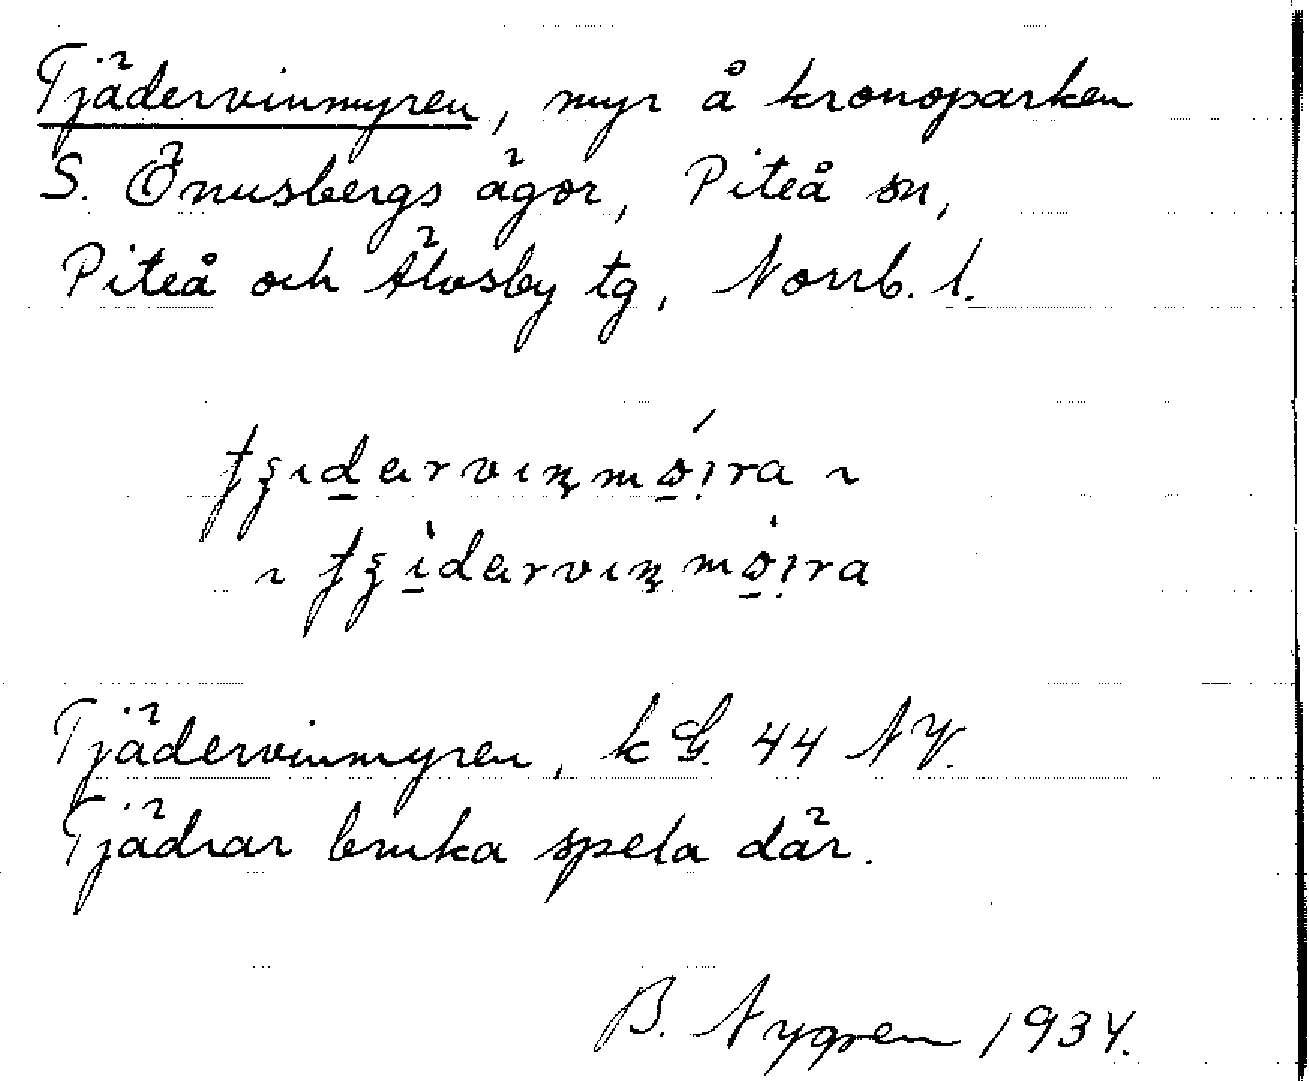 Tjädervinmyren, myr å kronoparken
S. Önusbergs ägor, Piteå sn,
Piteå och Älvsby tg, Norrb. l.
Tjädervinmyren, k G. 44 NV.
Tjädrar bruka spela där.
B. Nygren 1934.